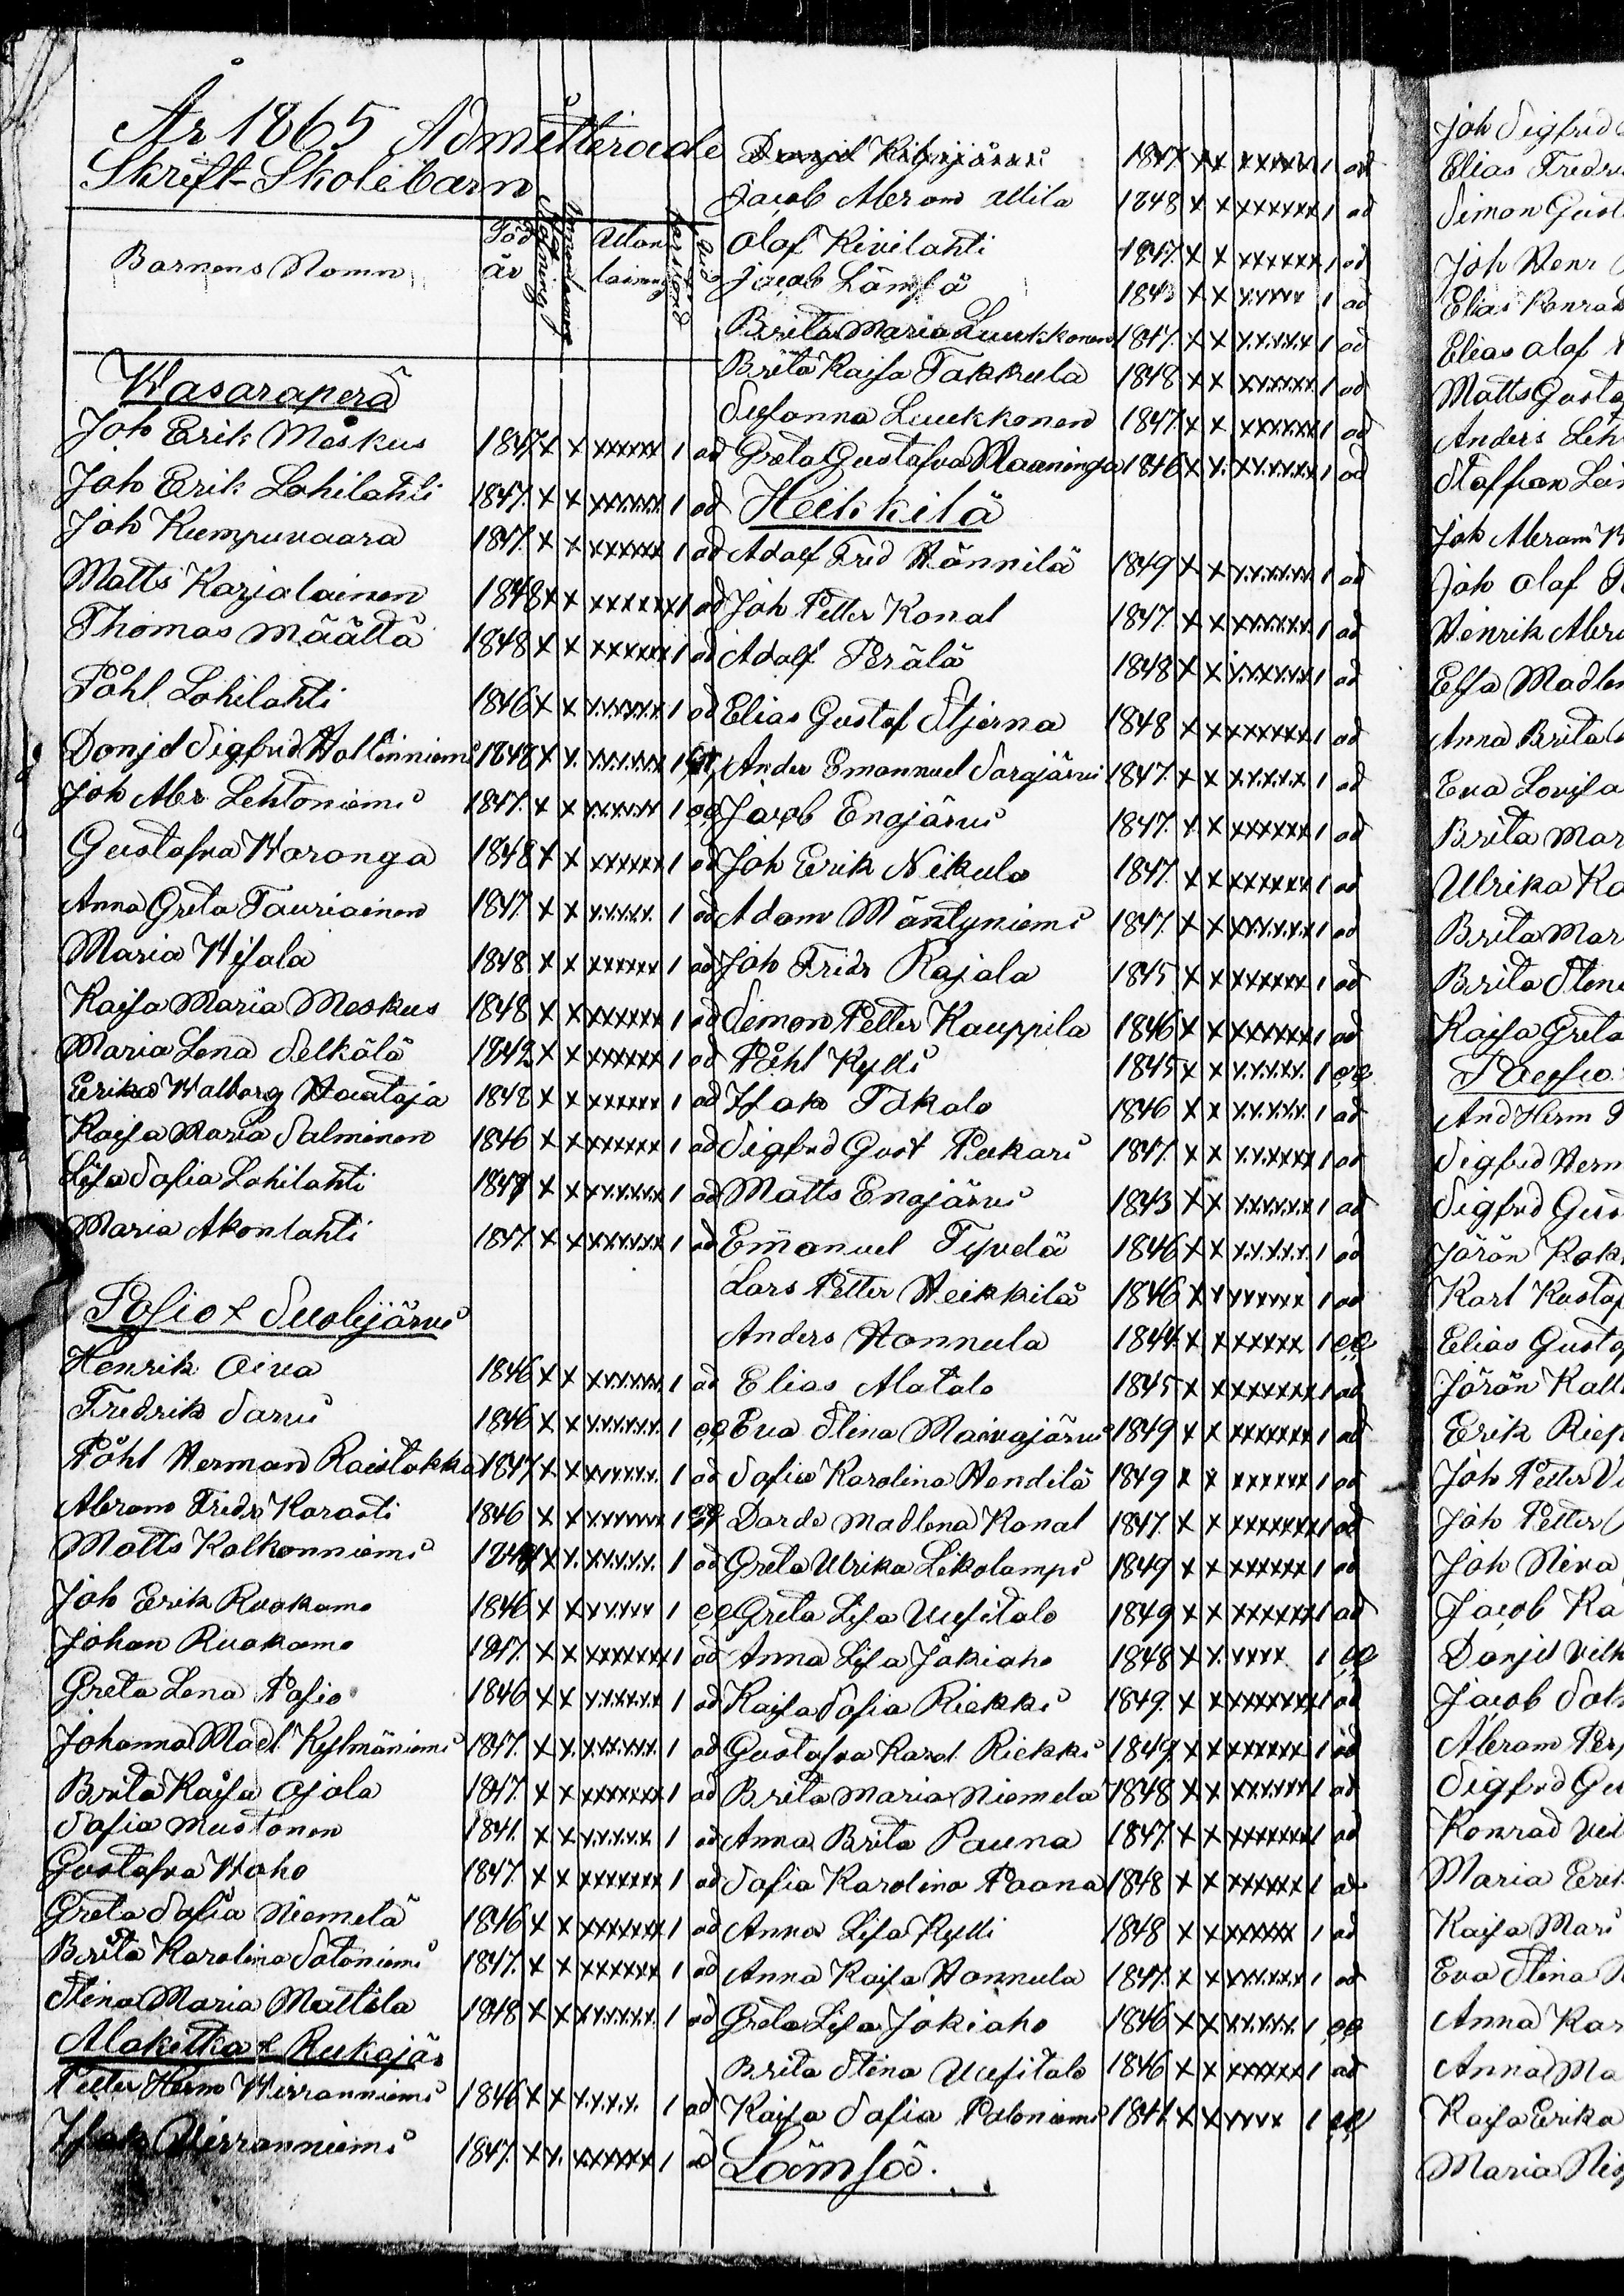 År 1865 Admitterade
Skrift-Skolebarn
Barnens Namn Föd år Utan
Kasaraperä
Joh Erik Meskus 1847 x x xxxxxx 1 ad
Joh Erik Lohilahti 1847. x x xxxxxx 1 ad
Joh Kumpuvaara 1847. x x xxxxxx 1 ad
Matts Karjalainen 1848 x x xxxxxx 1 ad
Thomas Määttä 1848 x x xxxxxx 1 ad
Påhl Lohilahti 1846 x x xxxxxx 1 ad
Danjel Sigfrid Hallinniemi 1848 x x xxxxxx 1
Joh Abr Lehtoniemi 1847. x x xxxxxx 1
Gustafva Waronga 1848 x x xxxxxx 1 ad
Anna Greta Tauriainen 1847. x x xxxxx 1 ad
Maria Wisala 1848 x x xxxxxx 1 ad
Kaisa Maria Meskus 1848 x x xxxxxx 1 ad
Maria Lena Selkälä 1842 x x xxxxxx 1 ad
Erika Walborg Hautaja 1848 x x xxxxxx 1 ad
Kaisa Maria Salminen 1846 x x xxxxxx 1 ad
Lisa Sofia Lohilahti 1847 x x xxxxxx 1 ad
Maria Akonlahti 1847. x x xxxxxx 1 ad
Posio & Suolijärvi
Henrik Oiva 1846 x x xxxxxx 1 ad
Fredrik Sarvi 1846 x x xxxxxx 1
Påhl Herman Raistakka 1847 x x xxxxxx 1 ad
Abram Fredr Karasti 1846 x x xxxxxx 1
Matts Kalkonniemi x x xxxxxx 1 ad
Joh Erik Ruokamo 1846 x x xxxxx 1
Johan Ruokamo 1847. x x xxxxxx 1 ad
Greta Lena Posio 1846 x x xxxxxx 1 ad
Johanna Madl Kylmäniemi 1847. x x xxxxxx 1 ad
Brita Kaisa Ojala 1847. x x xxxxxx 1 ad
Sofia Mustonen 1841. x x xxxxx 1 ad
Gustafva Waho 1847. x x xxxxxx 1 ad
Greta Sofia Niemelä 1846 x x xxxxxx 1 ad
Brita Karolina Satoniemi 1847. x x xxxxxx 1 ad
Stina Maria Mattila 1848 x x xxxxxx 1 ad
Alakitka & Rukajär
Petter Herm Wirranniemi 1846 x x xxxxx 1 ad
Isak Wirranniemi 1847. x x xxxxxx 1 ad
Danjel 1847 x x xxxxxx 1 ad
Jacob Abram Uttila 1848 x x xxxxxx 1 ad
Olaf Kivilahti 1847. x x xxxxxx 1 ad
Jacob Lämsä x x xxxxx 1 ad
Brita Maria Luukkonen 1847. x x xxxxxx 1 ad
Brita Kaisa Takkula 1848 x x xxxxxx 1 ad
Susanna Luukkonen 1847. x x xxxxxx 1 ad
Greta Gustafva Maaninga 1846 x x xxxxxx 1 ad
Heikkilä
Adolf Frid Hännilä 1849 x x xxxxxx 1 ad
Joh Petter Konal 1847. x x xxxxxx 1 ad
Adolf Perälä 1848 x x xxxxxx 1 ad
Elias Gustaf Stjerna 1848 x x xxxxxx 1 ad
Ander Emannuel Sarajärvi 1847. x x xxxxx 1 ad
Jacob Enojärvi 1847. x x xxxxxx 1 ad
Joh Erik Nikula 1847. x x xxxxxx 1 ad
Adam Mäntyniemi 1847. x x xxxxxx 1 ad
Joh Fridr Rajala 1845 x x xxxxxx 1 ad
Simon Petter Kauppila 1846 x x xxxxxx 1 ad
Påhl Kylli 1845 x x xxxxx 1
Isak Takalo 1846 x x xxxxx 1 ad
Sigfrid Gust Pekari 1847. x x xxxxxx 1 ad
Matts Enojärvi 1843 x x xxxxxx 1 ad
Emanuel Tyvelä 1846 x x xxxxx 1 ad
Lars Petter Heikkilä 1846 x x xxxxxx 1 ad
Anders Hannula 1844. x x xxxxx 1
Elias Alatalo 1845 x x xxxxxx 1 ad
Eva Stina Maivajärvi 1849 x x xxxxxx 1 ad
Sofia Karolina Hendilä 1849 x x xxxxxx 1 ad
Dorde Madlena Konal 1847. x x xxxxxx 1 ad
Greta Ulrika Likolampi 1849 x x xxxxxx 1 ad
Greta Lisa Uusitalo 1849 x x xxxxxx 1 ad
Anna Lisa Jokiaho 1848 x x xxxx 1
Kaisa Sofia Riekki 1849. x x xxxxxx 1 ad
Gustafva Karol. Riekki 1849 x x xxxxxx 1 ad
Brita Maria Niemela 1848 x x xxxxxx 1 ad
Anna Brita Pauna 1847. x x xxxxxx 1 ad
Sofia Karolina Paana 1848 x x xxxxxx 1 ad
Anna Lisa Kylli 1848 x x xxxxxx 1 ad
Anna Kaisa Hannula 1847. x x xxxxxx 1 ad
Greta Lisa Jokiaho 1846 x x xxxxx 1
Brita Stina Uusitalo 1846 x x xxxxxx 1 ad
Kaisa Sofia Paloniemi x x xxxx 1
Lämsä.
Joh Sigfrid
Elias Fredri
Simon Gust
Joh Henr
Elias Konrad
Elias Olaf
Matts Gusta
Anders Leh
Staffan Lä
Joh Abram
Joh Olaf
Henrik Abra
Elsa Madlen
Anna Brita
Eva Lovisa
Brita Mar
Ulrika Ka
Brita Mar
Brita Stina
Kaisa Greta
And Herm
Sigfrid Herm
Sigfrid Gus
Jörän Kok
Karl Kustaf
Elias Gusta
Jörän Kall
Erik
Joh Petter
Joh Petter
Joh Niva
Jacob Ka
Danjel Vilh
Jacob Sal
Abram Per
Sigfrid Gu
Konrad Vil
Maria Erik
Kaisa Mari
Eva Stina
Anna Kar
Anna Ma
Kaisa Erika
Maria Nis